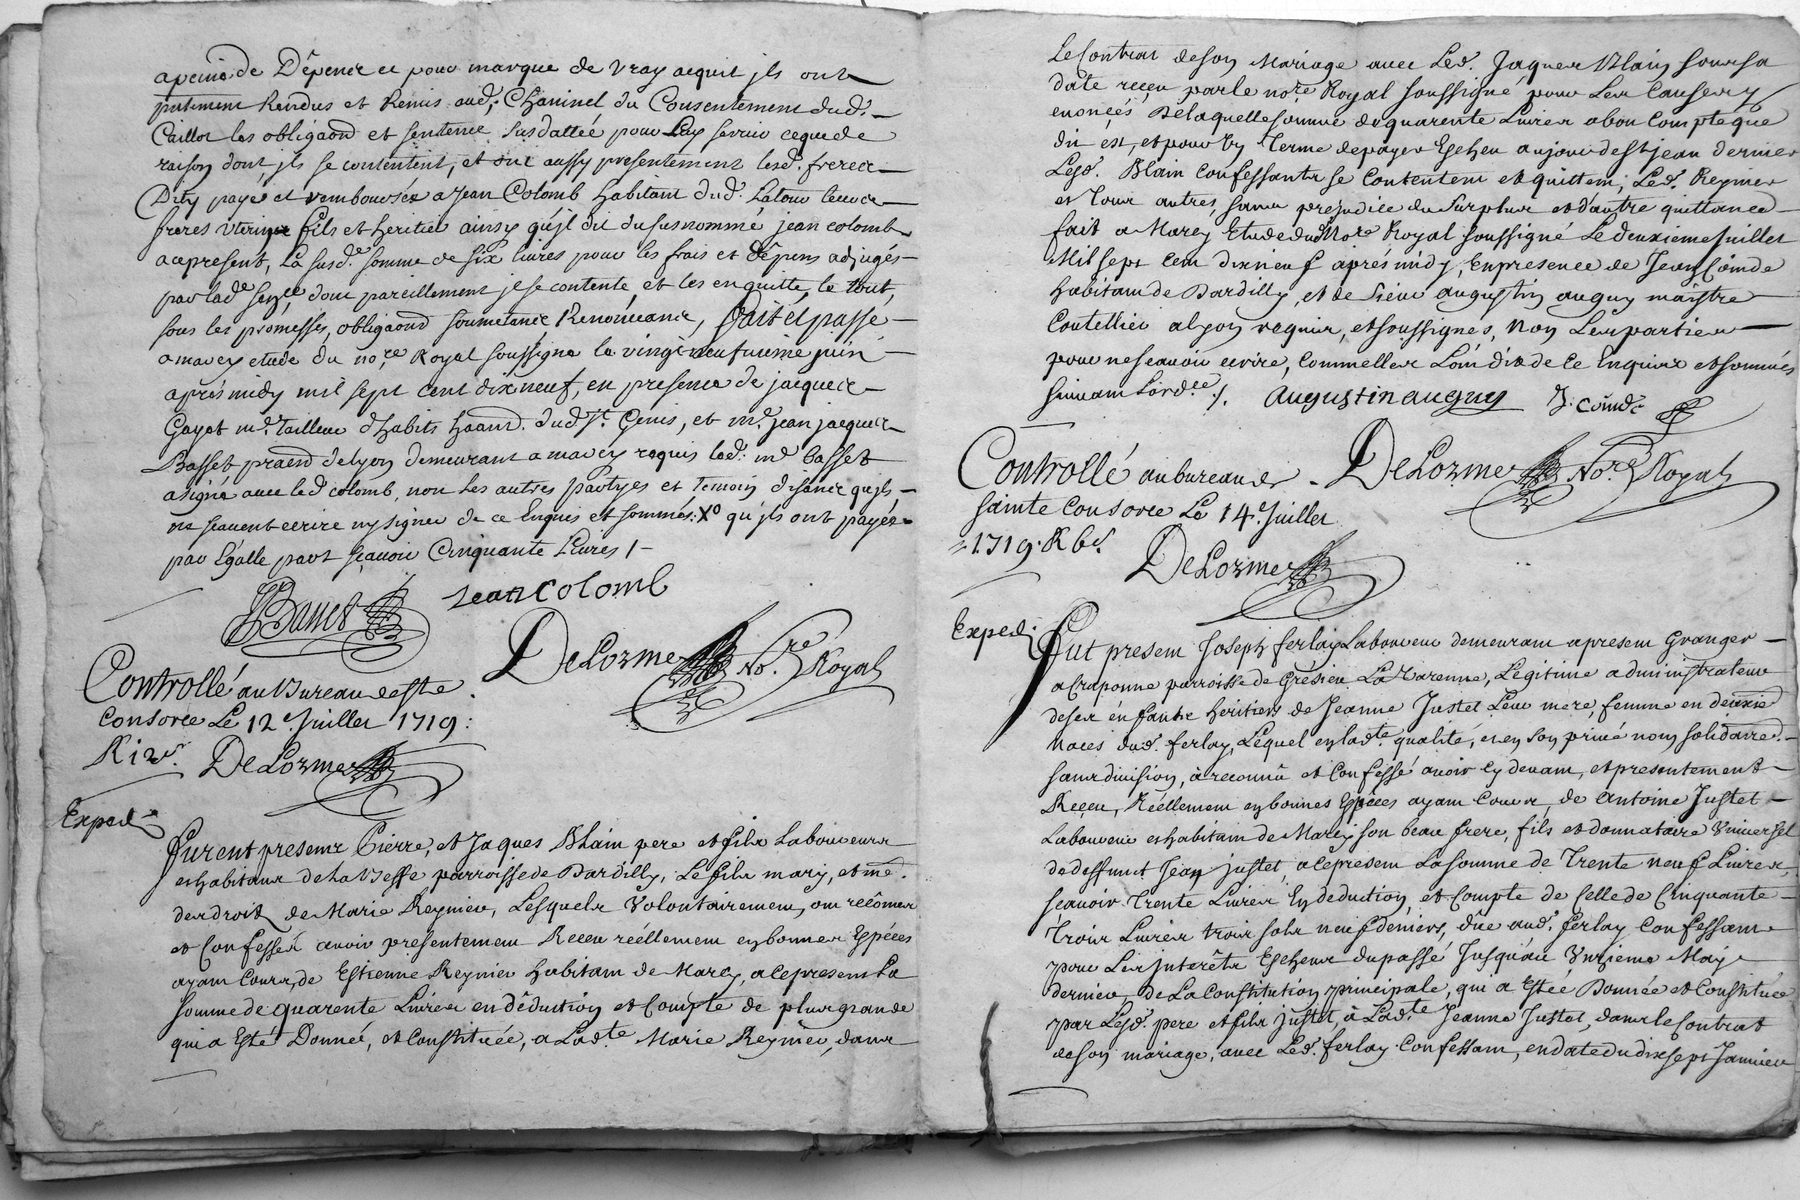 a peine de Dépenr et pour marque de vray acquit jls ont
Rendus et Remis aud. Chaninel du Consentement dud.
Caillot les obligaond et sentence susdattée pour
raison dont jls se contentent, et ont aussy presentement lesd. freres
Dity payé et remboursés a Jean Colomb habitant dud. Latour
freres uterins fils et heritier ainsy qu'jl dit du susnommé jean colomb
acepresent, La susd.e somme de six livres pour les frais et dêpens adjugés
par lad.e sen.ce dont pareillement jl se contente, et les en quitte, le tout,
sous les promesses, obligaond soumetance Renonceance, fait et passé
a marcy etude du no.re Royal soussigné le vingt neufuieme juin
aprés midy mil sept cent dix neuf, en presence de jacques
Gayot m.d tailleur d'habits haand. dud. s.t Genis, et m.e jean jacques
Basset praend delyon demeurant a marcy requis led. m.e basset
a signé avec led. colomb, non les autres partyes et temoin disance qu'jls
ne scavent ecrire ny signer de ce Enquis et sommés. X.o qu'jls ont payés
par Egalle part sçavoir Cinquante Livres /-
JJBasset jean colomb
DeLorme No.re Royal
Controllé au Bureau de Ste
Consorce Le 12.e Juillet 1719:
R i2s. DeLorme
Exped.
Furent presens Pierre, et Jaques Blain pere et fils Laboureurs
et habitans de La Besse parroisse de Dardilly, Le fils mary, et m.e
des droits de Marie Reynier, Lesquels Volontairement, ont recônus
et Confessés avoir présentement Receu réellement en bonnes Espéces
ayant Cours, de Estienne Reynier habitant de Marcy, acepresent La
somme de quarente Livres en dêduction et Compte de plus grande
qui a Esté Donnée, et Constituée, a Lad.te Marie Reynier, dans
Le Contrat de son Mariage avec Led. Jaques Blain sous sa
date reçeu par le no.re Royal soussigné pour Les Causes y
enoncées De laquelle somme de quarente Livres a bon Compte que
dit est, et pour un Terme de payer Echeu au jour de St jean dernier
Lesd. Blain Confessants se Contentent et quittent, Led. Reynier
et tous autres, sans prejudice du Surplus et d'autre quittance
fait a Marcy Etude dud. No.re Royal soussigné Le deuxieme Juillet
Mil sept cent dix neuf aprés midy, En presence de Jean Coinde
habitant de Dardilly, et de Sieur augustin auguy maistre
Coutellier a lyon requis, et soussignés, Non Les parties
pour ne scavoir ecrire, comme Elles L'ont dit de ce Enquises et sommés
suivant L'ord.ce /. Augustin auguy J. Coinde
Controllé au bureau de DeLorme No.re Royal
sainte Consorce Le 14.e Juillet
1719. R 6s.
DeLorme
Exped.
Fut present Joseph ferlay Laboureur demeurant a present Granger
a Craponne parroisse de Grésieu La Varenne, Légitime administrateur
de ses énfants heritiers de Jeanne Justet Leur mere, femme en deuxie
noces dud. ferlay, Lequel en lad.te qualité, et en son privé nom solidaire
sans division, à reconnû et Confessé avoir cy devant, et presentement
Reçeu, Réellement en bonnes Espêces ayant Cours, de Antoine Justet
Laboureur et habitant de Marcy son beau frere, fils et donnataire Universel
de deffunct Jean justet, acepresent La somme de Trente neuf Livres,
scavoir Trente Livres En deduction, et Compte de Celle de Cinquante
trois Livres trois sols neuf deniers, dûe aud. ferlay Confessant
pour Les Interêts Echeus du passé Jusqu'au Unzieme May
dernier de La Constitution principale, qui a Esté Donnée et Constituée
par Lesd. pere et fils justet, à Lad.te Jeanne Justet, dans le Contrat
de son mariage, avec Led. ferlay Confessant, en date du dixsept Janvier